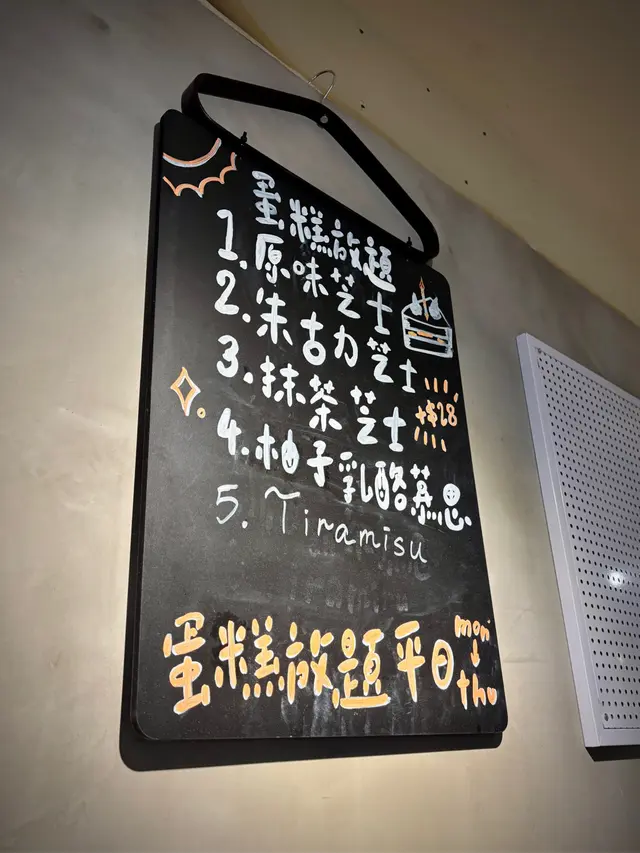 蛋糕放題
1. 原味芝士
2. 朱古力芝士
3. 抹茶芝士
+$28
4. 柚子乳酪慕思
5. Tiramisu
蛋糕放題平日
mon
↓
thu